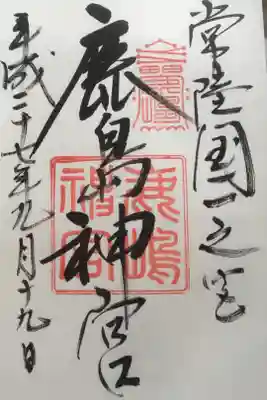 常陸国一之宮
鹿島神宮
鹿嶋
神宮
平成二十七年九月十九日